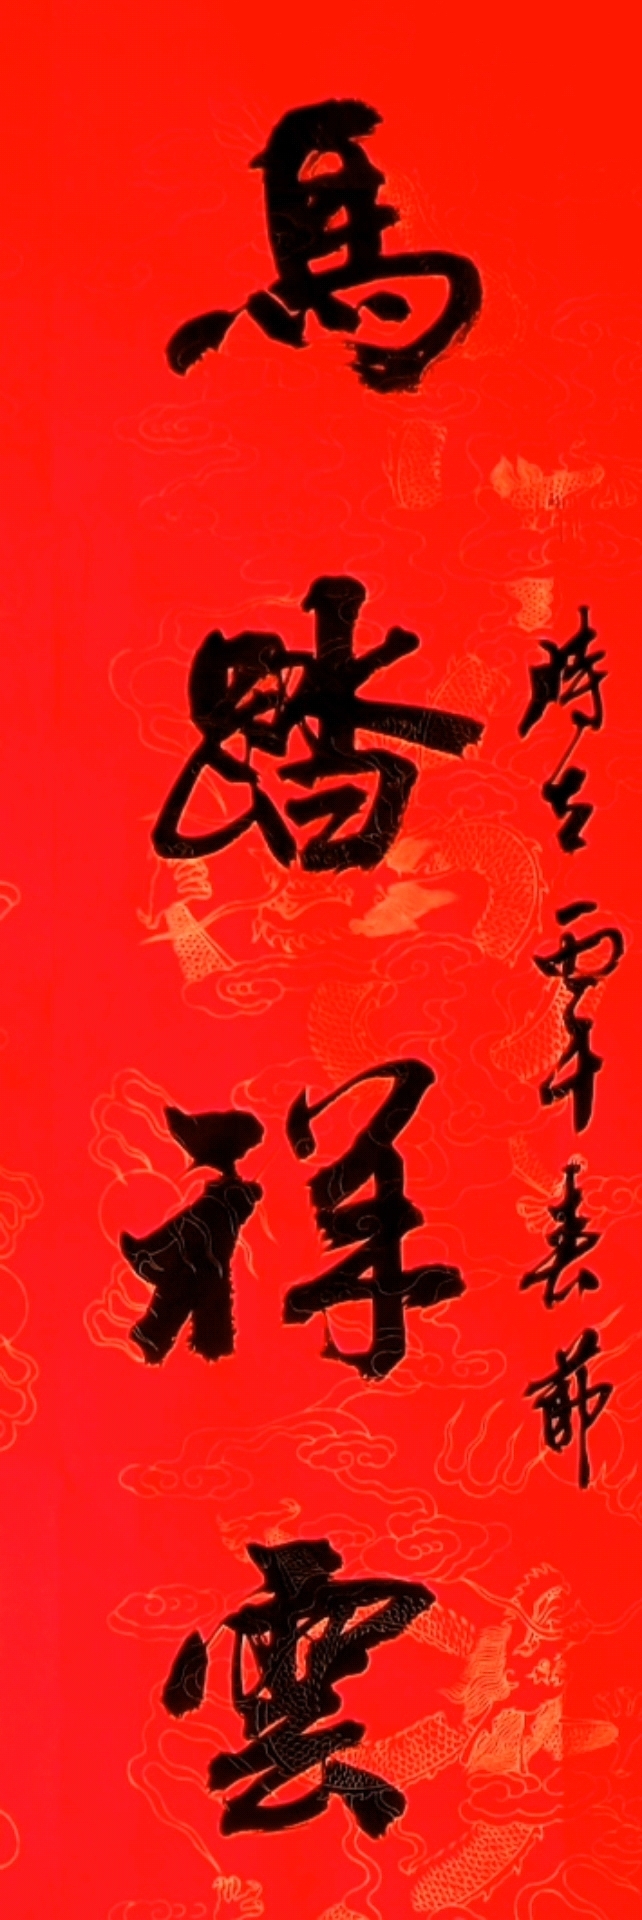 時在丙午春節
馬踏祥雲